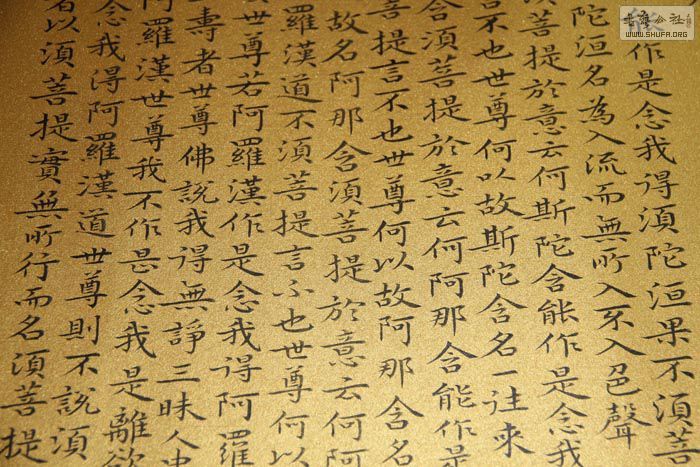 WWW.SHUFA.ORG
作是念我得須陀洹果不須菩
陀洹名為入流而無所入不入色聲
須菩提於意云何斯陀含能作是念我
言不也世尊何以故斯陀含名一往來
含須菩提於意云何阿那含能作是
菩提言不也世尊何以故阿那含名
故名阿那含須菩提於意云何阿
羅漢道不須菩提言不也世尊何以
世尊若阿羅漢作是念我得阿羅
壽者世尊佛說我得無諍三昧人中
阿羅漢世尊我不作是念我是離欲
念我得阿羅漢道世尊則不說須
者以須菩提實無所行而名須菩提